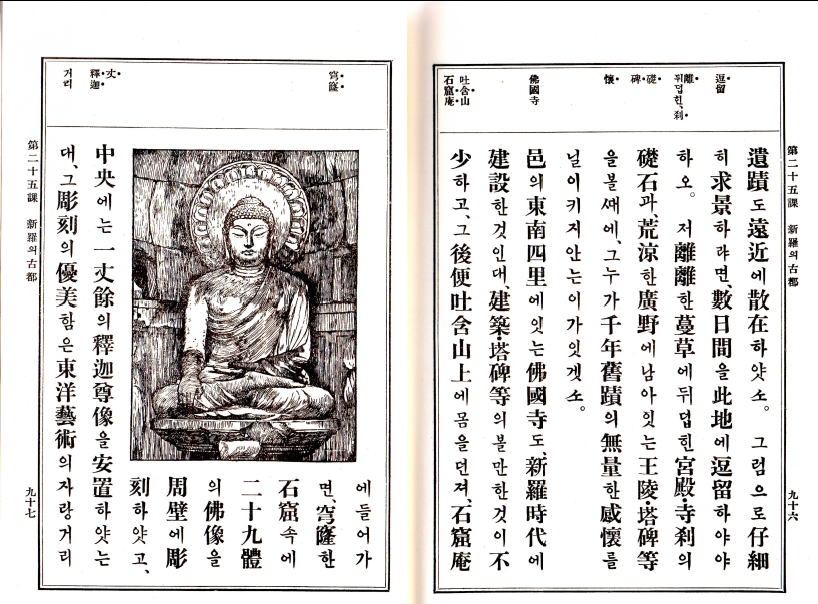 第二十五課 新羅의古都
九十六
逗留
離
뒤덥힌、刹
礎
碑
懷
佛國寺
吐含山
石窟庵
遺蹟도遠近에散在하얏소。 그럼으로仔細
히求景하랴면、數日間을此地에逗留하야야
하오。 저離離한蔓草에뒤덥힌宮殿·寺刹의
礎石과、荒涼한廣野에남아잇는王陵·塔碑等
을볼ᄯᅢ에、그누가千年舊蹟의無量한感懷를
닐이키지안는이가잇겟소。
邑의東南四里에잇는佛國寺도、新羅時代에
建設한것인대、建築·塔碑等의볼만한것이不
少하고、그後便吐含山上에몸을던져、石窟庵
穹窿
丈
釋迦
거리
에들어가
면、穹窿한
石窟속에
二十九體
의佛像을
周壁에彫
刻하얏고、
中央에는一丈餘의釋迦尊像을安置하얏는
대、그彫刻의優美함은東洋藝術의자랑거리
第二十五課 新羅의古都
九十七